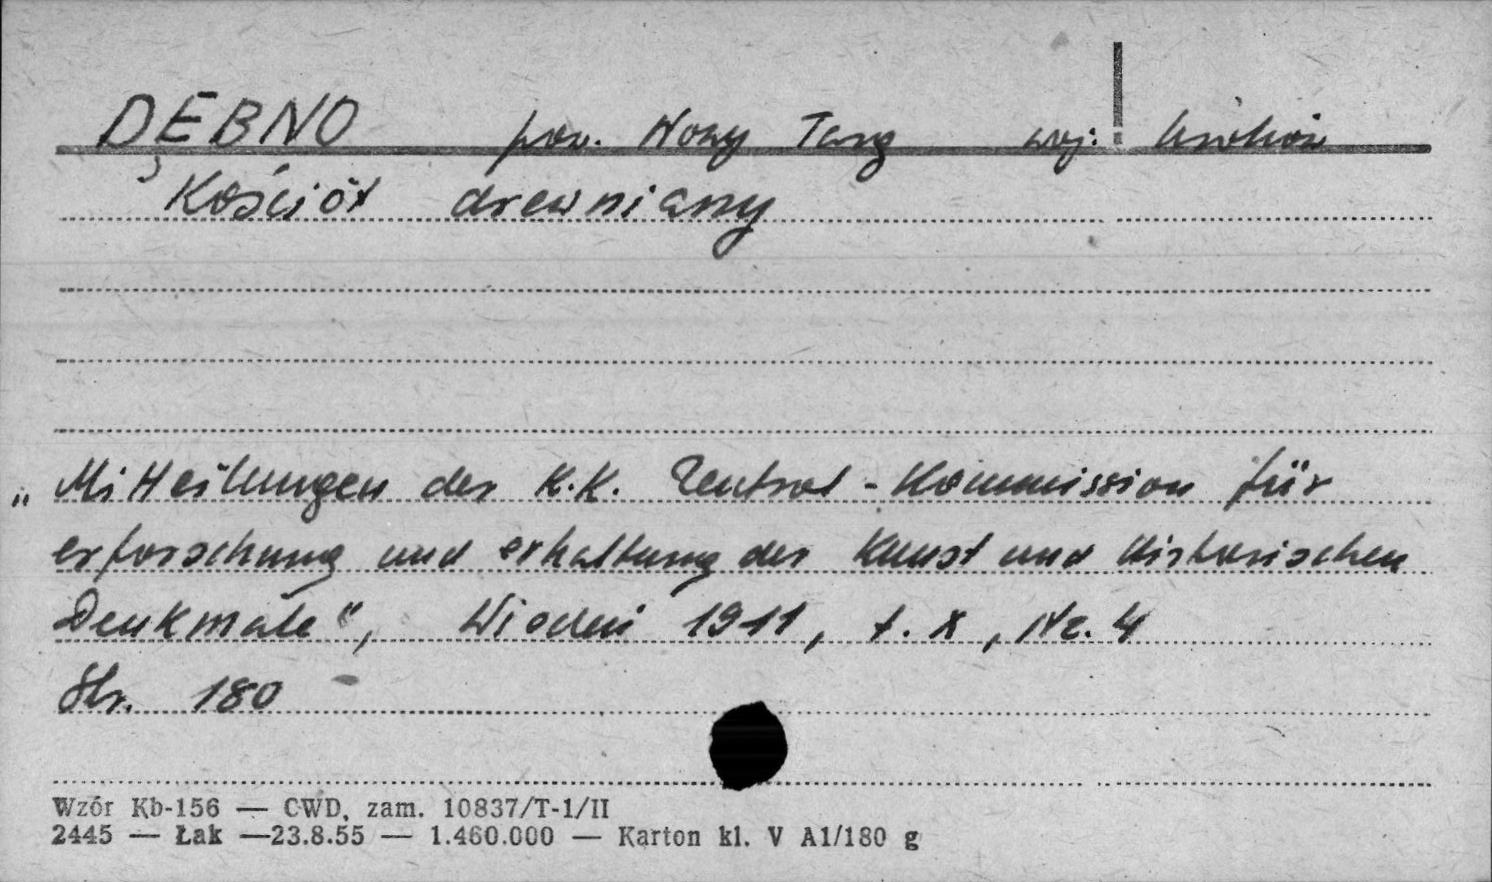 DĘBNO pow. Nowy Targ woj. Kraków
Kościół drewniany
„Mitteilungen der K.K. Zentral-Kommission für
erforschung und erhaltung der Kunst und historischen
Denkmale", Wiedeń 1911, t. X, Nr. 4
Str. 180
Wzór Kb-156 — CWD, zam. 10837/T-1/II
2445 — Łak —23.8.55 — 1.460.000 — Karton kl. V A1/180 g